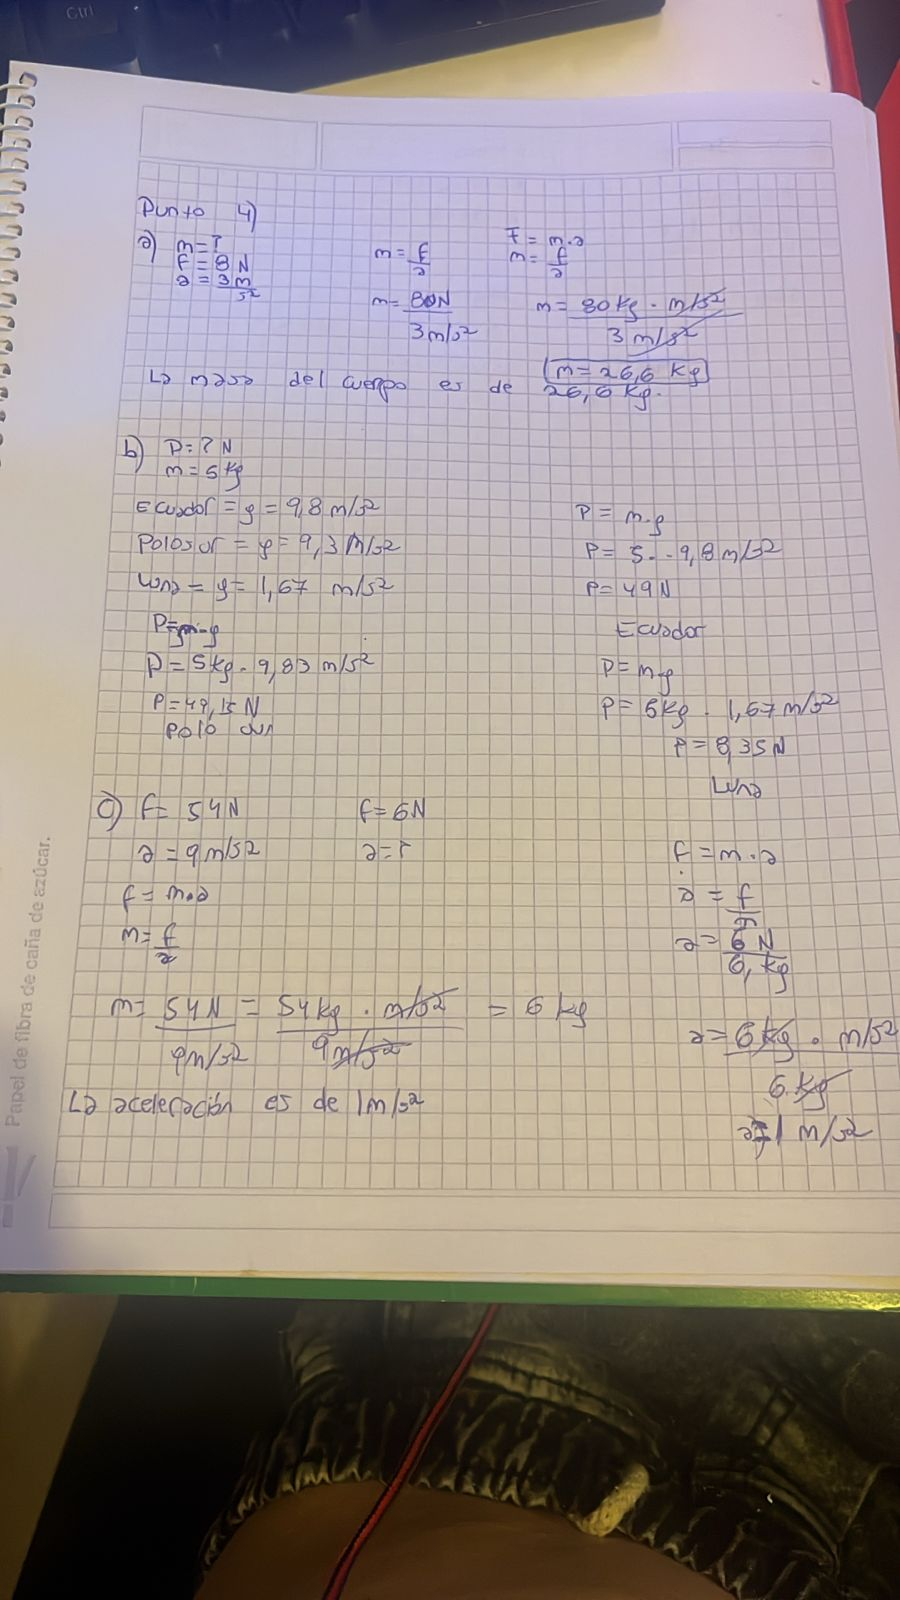 Ctrl
Punto 4)
a) m = ?
F = 8 N
a = 3 m/s²
m = f/a
m = 80N / 3 m/s²
F = m.a
m = f/a
m = 80 kg . m/s² / 3 m/s²
m = 26,6 kg
La masa del cuerpo es de 26,6 kg.
b) P = ? N
m = 5 kg
Ecuador = g = 9,8 m/s²
Polosur = g = 9,3 m/s²
Luna = g = 1,67 m/s²
P = m.g
P = 5kg . 9,83 m/s²
P = 49,15 N
Polo sur
P = m.g
P = 5 . 9,8 m/s²
P = 49 N
Ecuador
P = m.g
P = 5kg . 1,67 m/s²
P = 8,35 N
Luna
c) f = 54N
a = 9 m/s²
f = m.a
m = f/a
f = 6N
a = ?
m = 54N / 9m/s² = 54 kg . m/s² / 9 m/s² = 6 kg
La aceleración es de 1 m/s²
f = m.a
a = f/m
a = 6 N / 6, kg
a = 6 kg . m/s² / 6 kg
a = 1 m/s²
Papel de fibra de caña de azúcar.